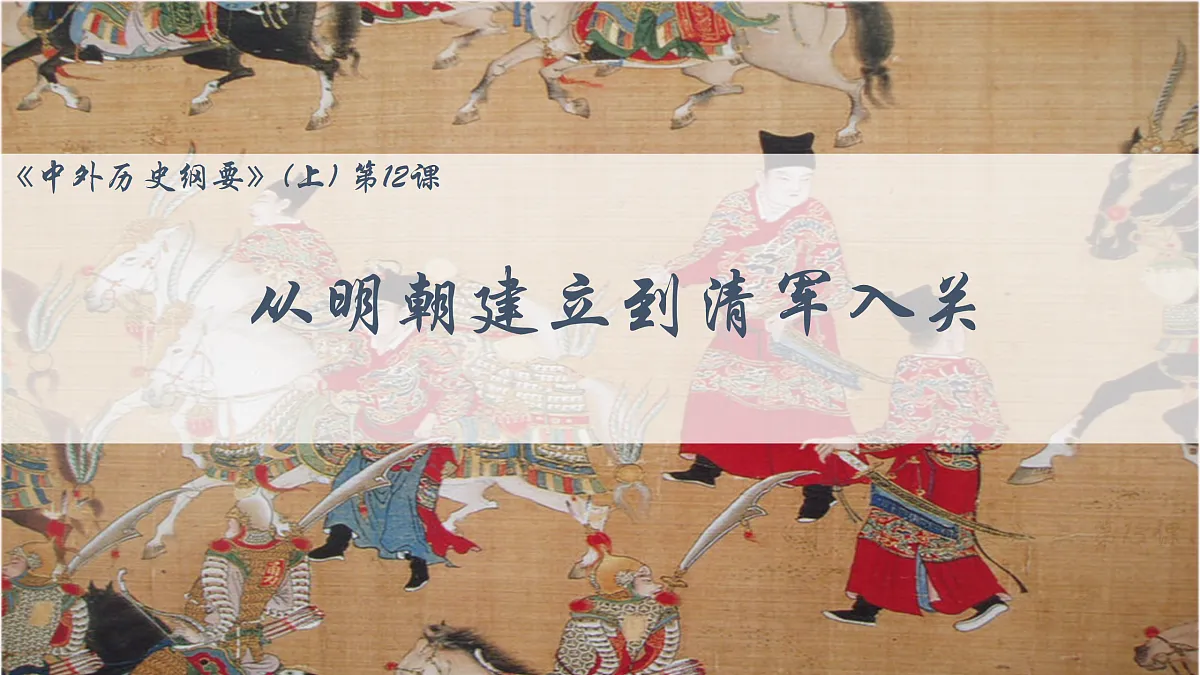 《中外历史纲要》(上)第12课
从明朝建立到清军入关